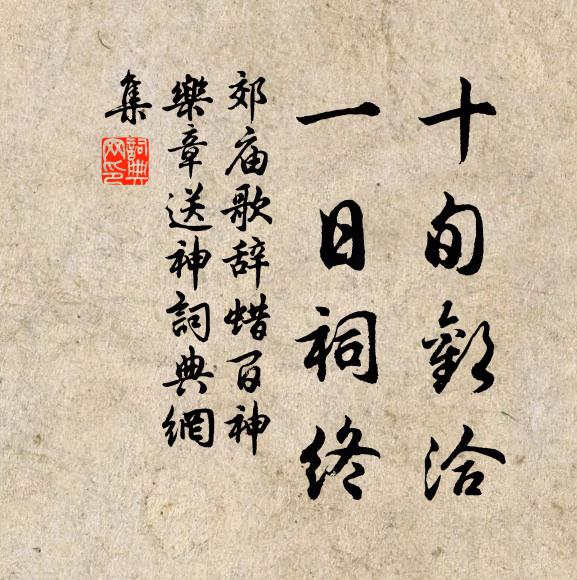 十旬歡洽
一日祠終
郊庙歌辞蜡百神
樂章送神詞典網
集
詞典
网印